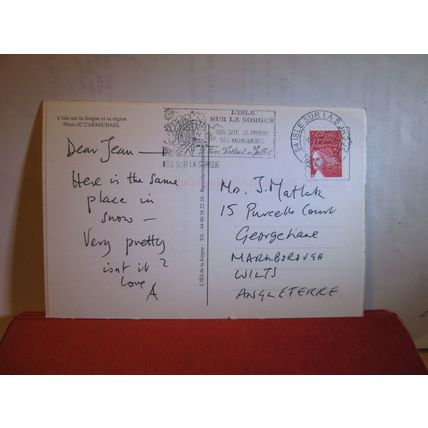 L'Isle sur la Sorgue et sa région
Photo JC CARMICHAEL
Dear Jean —
Here is the same
place in
snow —
Very pretty
isn't it?
love
A
L'ISLE
SUR LA SORGUE
SON SITE, SA RIVIERE
SES MONUMENTS
SUR LA SORGUE
84 ISLE SUR LA S
L'Œil de la Sorgue - Tél. : 04 90 38 22 10 -
J. Matlak
15 Purcells Court
George Lane
MARLBOROUGH
WILTS
ANGLETERRE